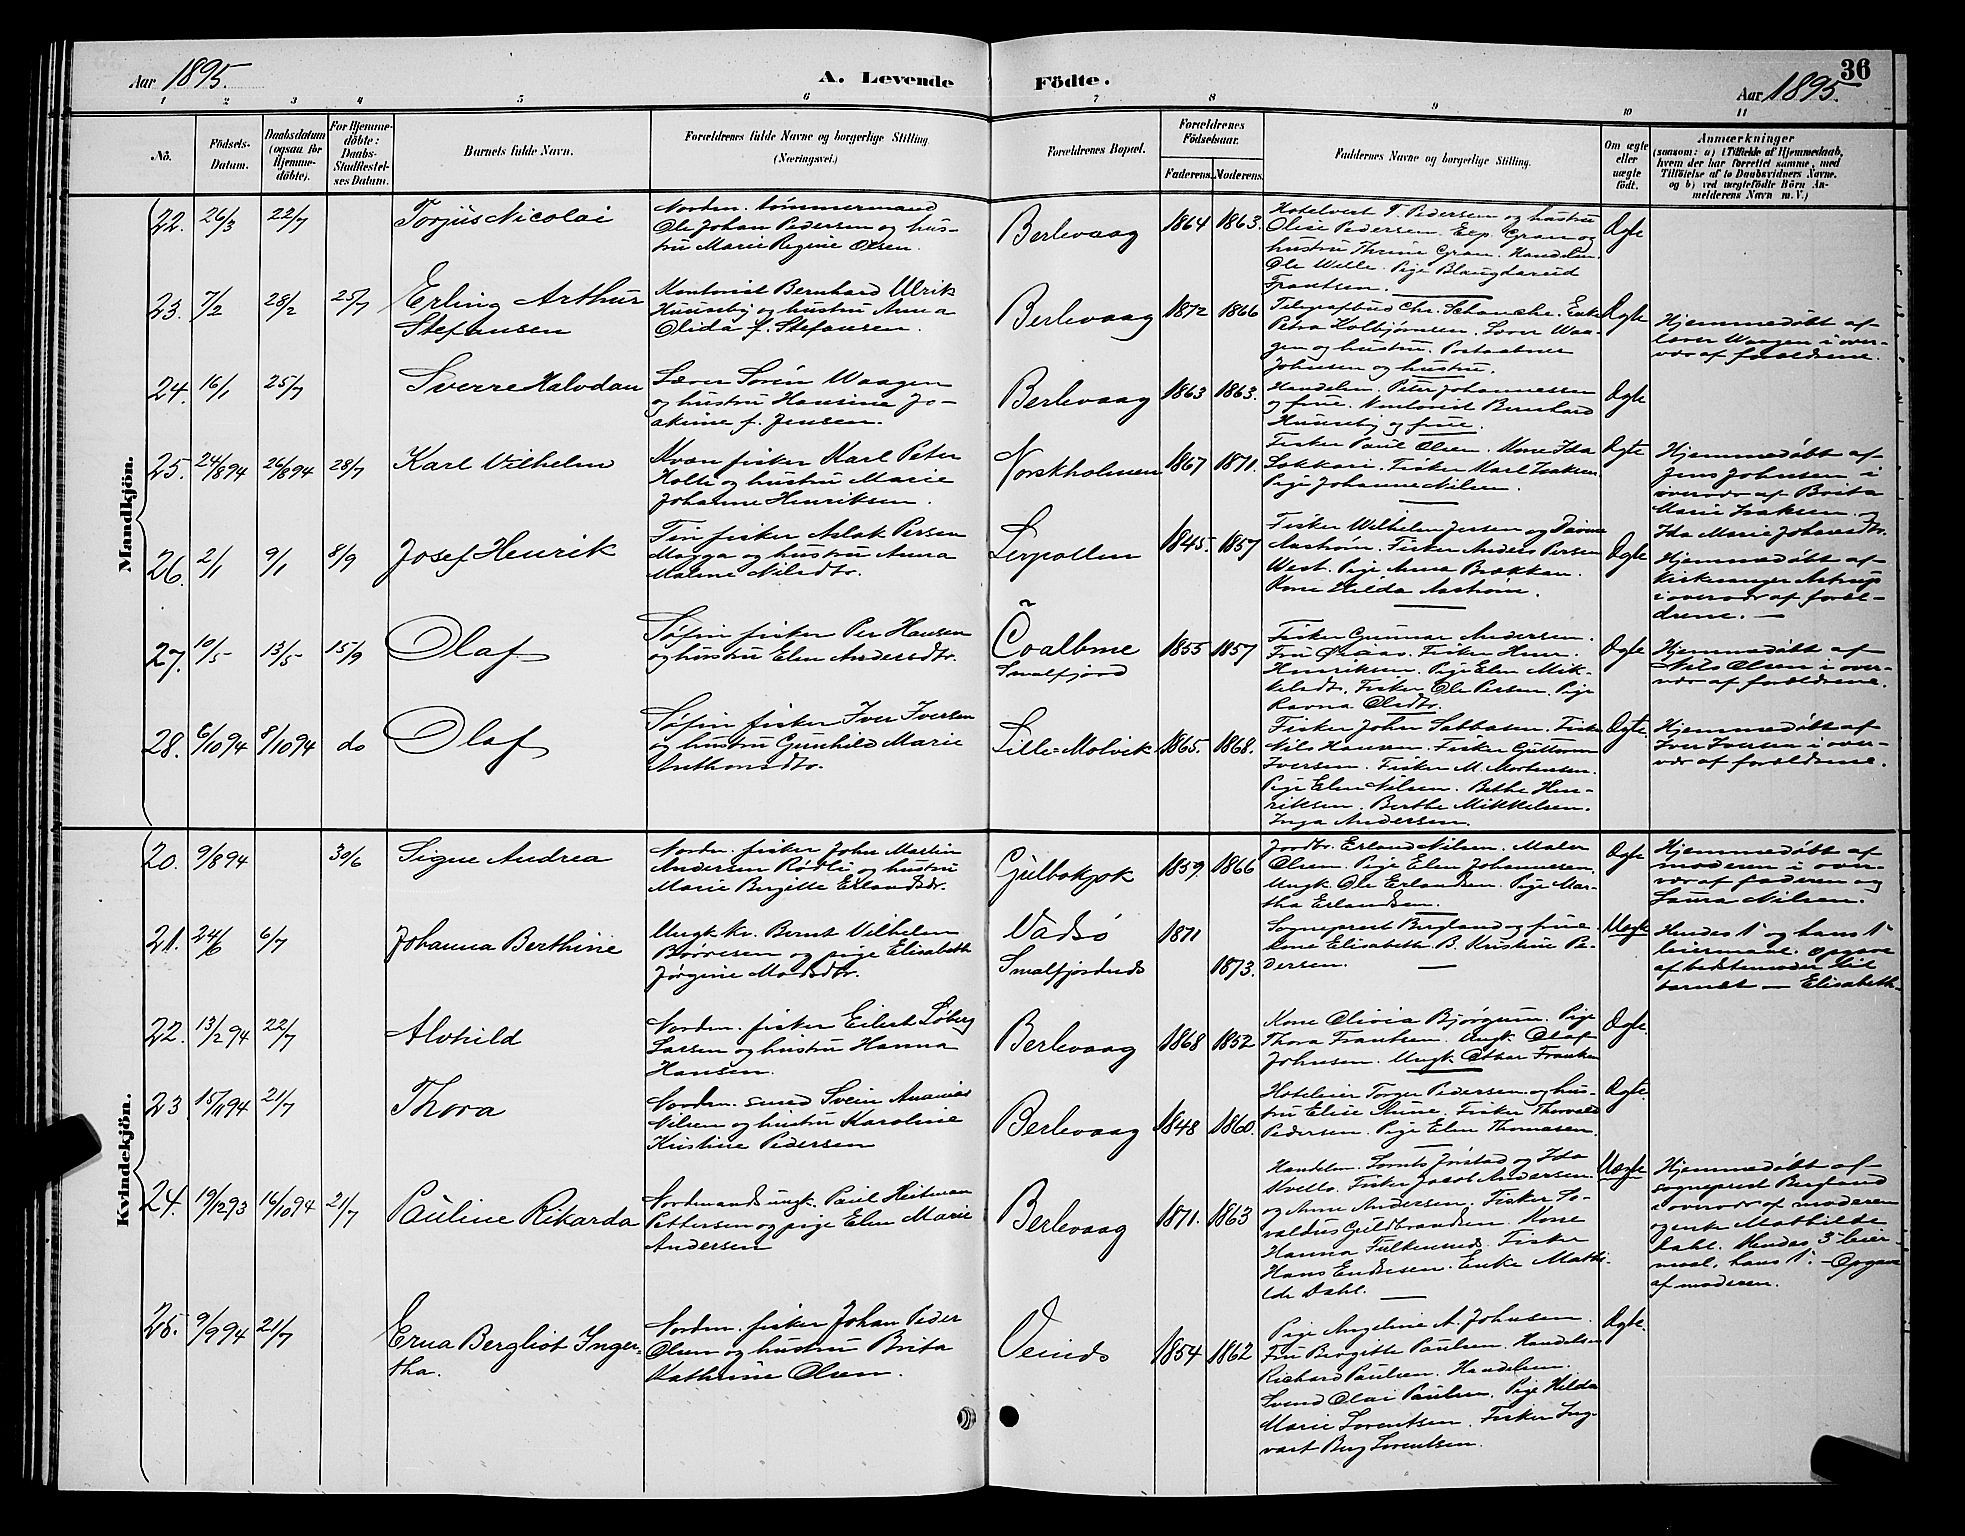 Aar 1895.
A. Levende
Födte.
Aar 1895.
36
1 2 3 4 5 6 7 8 9 10 11
No.
Födsels-
Datum.
Daabsdatum
(ogsaa for
Hjemme-
döbte).
For Hjemme-
döbte:
Daabs-
Stadfæstel-
ses Datum.
Barnets fulde Navn.
Forældrenes fulde Navne og borgerlige Stilling
(Næringsvei.)
Forældrenes Bopæl.
Forældrenes
Födselsaar.
Faderens. Moderens.
Faddernes Navne og borgerlige Stilling.
Om ægte
eller
uægte
födt.
Anmærkninger
(saasom: a) i Tilfælde af Hjemmedaab,
hvem der har forrettet samme, med
Tilföielse af to Daabsvidners Navne,
og b) ved uægtefödte Börn An-
melderens Navn m. V.)
Mandkjön.
22. 26/3 22/7
Torjus Nicolai
Nordm. tømmermand
Ole Johan Pedersen og hus-
tru Marie Regine Olsen.
Berlevaag 1864 1863.
Hotelvert T. Pedersen og hustru
Olise Pedersen. Exp. Gran og
hustru Thrine Gran. Handelsm.
Ole Wille. Pige
Frantsen.
Ægte
23. 7/2 28/2 25/7
Erling Arthur
Stefansen
Kontorist Bernhard Ulrik
Huuseby og hustru Anna
Olida f. Stefansen.
Berlevaag 1872 1866
Telegrafbud Chr. Schanche. Enke
Petra Kolbjørnsen. Lærer Waa-
gen og hustru. Postaabner
Johnsen og hustru.
Ægte
Hjemmedøbt af
lærer Waagen i over-
vær af forældrene.
24. 16/1 25/7
Sverre Halvdan
Lærer Sørén Waagen
og hustru Hansine Jo-
akime f. Jensen.
Berlevaag 1863 1863.
Handelsm. Peter Johannessen
og frue. Kontorist Bernhard
Huuseby og frue.
Ægte
25. 24/894 26/894 28/7
Karl Vilhelm
Kvæn fisker Karl Peter
Kolti og hustru Marie
Johanne Henriksen.
Norskholmen 1867 1871.
Fisker Paul Olsen. Kone Ida
Sakkari. Fisker Karl Isaksen.
Pige Johanne Nilsen.
Ægte
Hjemmedøbt af
Jens Johnsen i
overvær af Brita
Marie Isaksen og
Ida Marie Johansdtr.
26. 2/1 9/1 8/9
Josef Henrik
Fin fisker Aslak Persen
Magga og hustru Anna
Malene Nilsdtr.
Lerpollen 1845. 1857
Fisker Wilhelm Jessen og
Aastrøm. Fisker Anders Persen
West. Pige Anna Brækkan.
Kone Hilda Aastrøm.
Ægte
Hjemmedøbt af
kirkesanger Astrup
i overvær af foræl-
drene.
27. 10/5 13/5 15/9
Olaf
Søfin fisker Per Hansen
og hustru Elen Andersdtr.
Čoalbme
Smalfjord
1855 1857
Fisker Gunnar Andersen.
Fru Fisker Henr.
Henriksen. Pige Elen Mik-
kelsdtr. Fisker Ole Persen. Pige
Ravna Olsdtr.
Ægte
Hjemmedøbt af
Nils Olsen i over-
vær af forældrene.
28. 6/1094 8/1094 do
Olaf
Søfin fisker Iver Iversen
og hustru Gunhild Marie
Anthonsdtr.
Lille-Molvik 1865. 1868.
Fisker John Sabbasen. Fisker
Nils Hansen. Fisker Guttorm
Iversen. Fisker M. Mortensen.
Pige Elen Nilsen. Bethe Hen-
riksen. Berthe Mikkelsen.
Inga Andersen.
Ægte.
Hjemmedøbt af
Iver Iversen i over-
vær af forældrene.
Kvindekjön.
20. 9/894 30/6
Signe Andrea
Nordm. fisker John Martin
Andersen Rødli og hustru
Marie Bergitte Erlandsdr.
Gulbokjok 1859. 1866
Jordbr. Erland Nilsen. Maler
Olsen. Pige Elen Johannesen.
Ungk. Ole Erlandsen. Pige Mar-
tha Erlandsen.
Ægte
Hjemmedøbt af
moderen i over-
vær af faderen og
Laura Nilsen.
21. 24/6 6/7
Johanna Berthine
Ungk. kv. Bernt Vilhelm
Børresen og pige Elisabeth
Jørgine Madsdtr.
Vadsö
Smalfjordnæs
1871
1873.
Sogneprest Bergland og frue.
Kone Elisabeth B. Kristine Pe-
dersen.
Uægte
Hendes 1ste og hans 1ste
leiermaal. Opgave
af bedstemoder til
barnet — Elisabeth.
22. 13/294 22/7
Alvhild
Nordm. fisker Eilert Søberg
Larsen og hustru Hanna
Hansen.
Berlevaag 1868 1852
Kone Olivia Bjørgum. Pige
Thora Frantsen. Ungk. Olaf
Johnsen. Ungk. Othar Frantsen
Ægte.
23 15/1194 21/7
Thora
Nordm. smed Svein Ananias
Nilsen og hustru Karoline
Kristine Pedersen
Berlevaag 1848 1860.
Hoteleier Torger Pedersen og hus-
tru Elise Fisker Thorvald
Pedersen. Pige Elen Thomasen.
Ægte.
24. 19/1293 16/1094 21/7
Pauline Rikarda
Nordmands ungk. Paul Heitman
Pettersen og pige Elen Marie
Andersen
Berlevaag 1871. 1863
Handelsm. Lornts Jørstad og Ida
Kvello. Fisker Jacob Andersen
og Anne Andersen. Fisker To-
valdus Guldbrandsen. Kone
Hanna Falkenæs. Fisker
Hans Endresen. Enke Mathi-
lde Dahl.
Uægte
Hjemmedøbt af
sogneprest Bergland
i overvær af moderen
og enke Mathilde
Dahl. Hendes 3die leier-
maal, hans 1ste. Opgave
af moderen.
25. 9/994 21/7
Erna Bergliot Inger-
tha.
Nordm. fisker Johan Peder
Olsen og hustru Brita
Kathrine Olsen.
Veinæs 1854 1862
Pige Angeline A. Johnsen.
Fru Birgitte Paulsen. Handelsm.
Richard Paulsen. Handelsm.
Svend Olai Paulsen. Pige Hilda
Marie Lorentsen. Fisker Ing-
vart Berg Lorentsen.
Ægte.